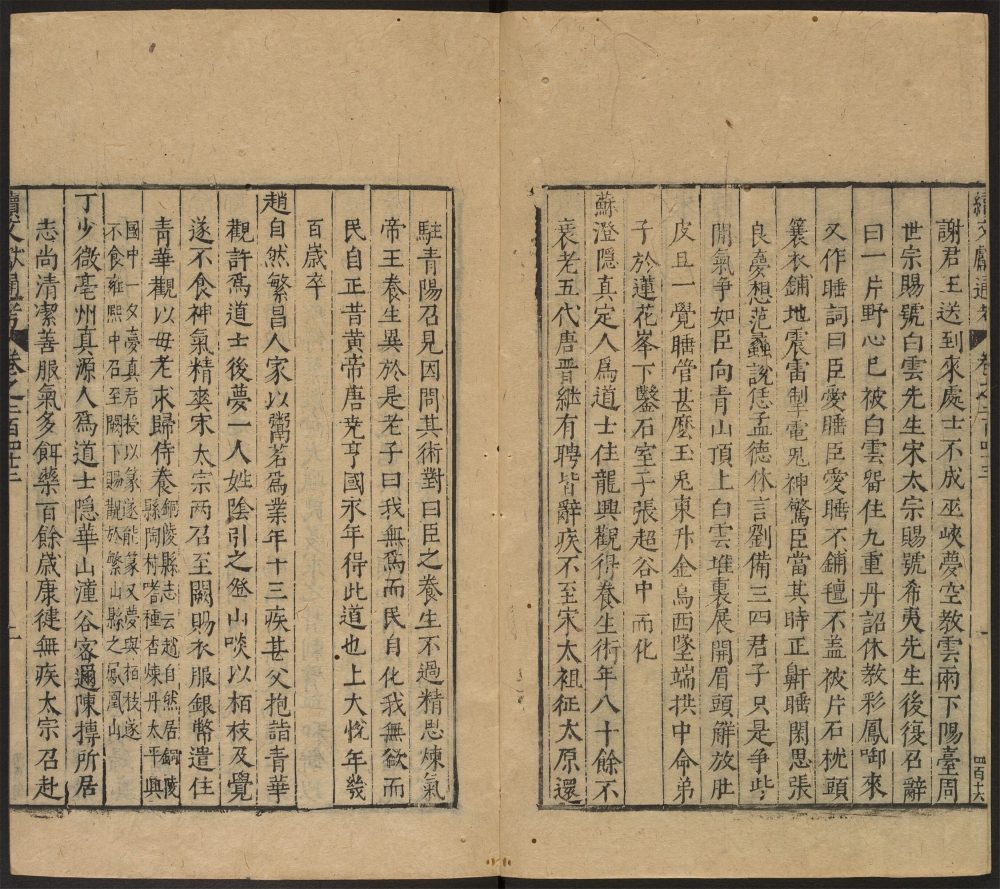 續文獻通考 卷之二百四十三
謝君王送到來處士不成巫峽夢空教雲雨下陽臺周
世宗賜號白雲先生宋太宗賜號希夷先生後復召辭
曰一片野心已被白雲畱住九重丹詔休教彩鳳啣來
又作睡詞曰臣愛睡臣愛睡不鋪氊不盖被片石枕頭
簑衣鋪地震雷掣電鬼神驚臣當其時正鼾睡閑思張
良夢想范蠡說恁孟德休言劉備三四君子只是爭些
閒氣爭如臣向青山頂上白雲堆裏展開眉頭解放肚
皮且一覺睡管甚麽玉兎東升金烏西墜端拱中命弟
子於蓮花峯下鑿石室于張超谷中而化
蘇澄隱真定人爲道士住龍興觀得養生術年八十餘不
衰老五代唐晉継有聘皆辭疾不至宋太祖征太原還
四百十六
駐青陽召見因問其術對曰臣之養生不過精思煉氣
帝王養生異於是老子曰我無爲而民自化我無欲而
民自正昔黄帝唐尭享國永年得此道也上大悅年幾
百歲卒
趙自然繁昌人家以鬻茗爲業年十三疾甚父抱詣青華
觀許爲道士後夢一人姓陰引之登山啖以栢枝及覺
遂不食神氣精爽宋太宗两召至闕賜衣服銀幣遣住
青華觀以母老求歸侍養銅陵縣志云趙自然居銅陵
縣陶村嗜種杏煉丹太平興
國中一夕夢真君長以篆遂能篆又夢與柏枝遂
不食雍熙中召至闕下賜觀於繁山縣之鳳凰山
丁少微亳州真源人爲道士隱華山潼谷宻邇陳摶所居
志尚清潔善服氣多餌藥百餘歲康健無疾太宗召赴
續文獻通考 卷之二百四十三